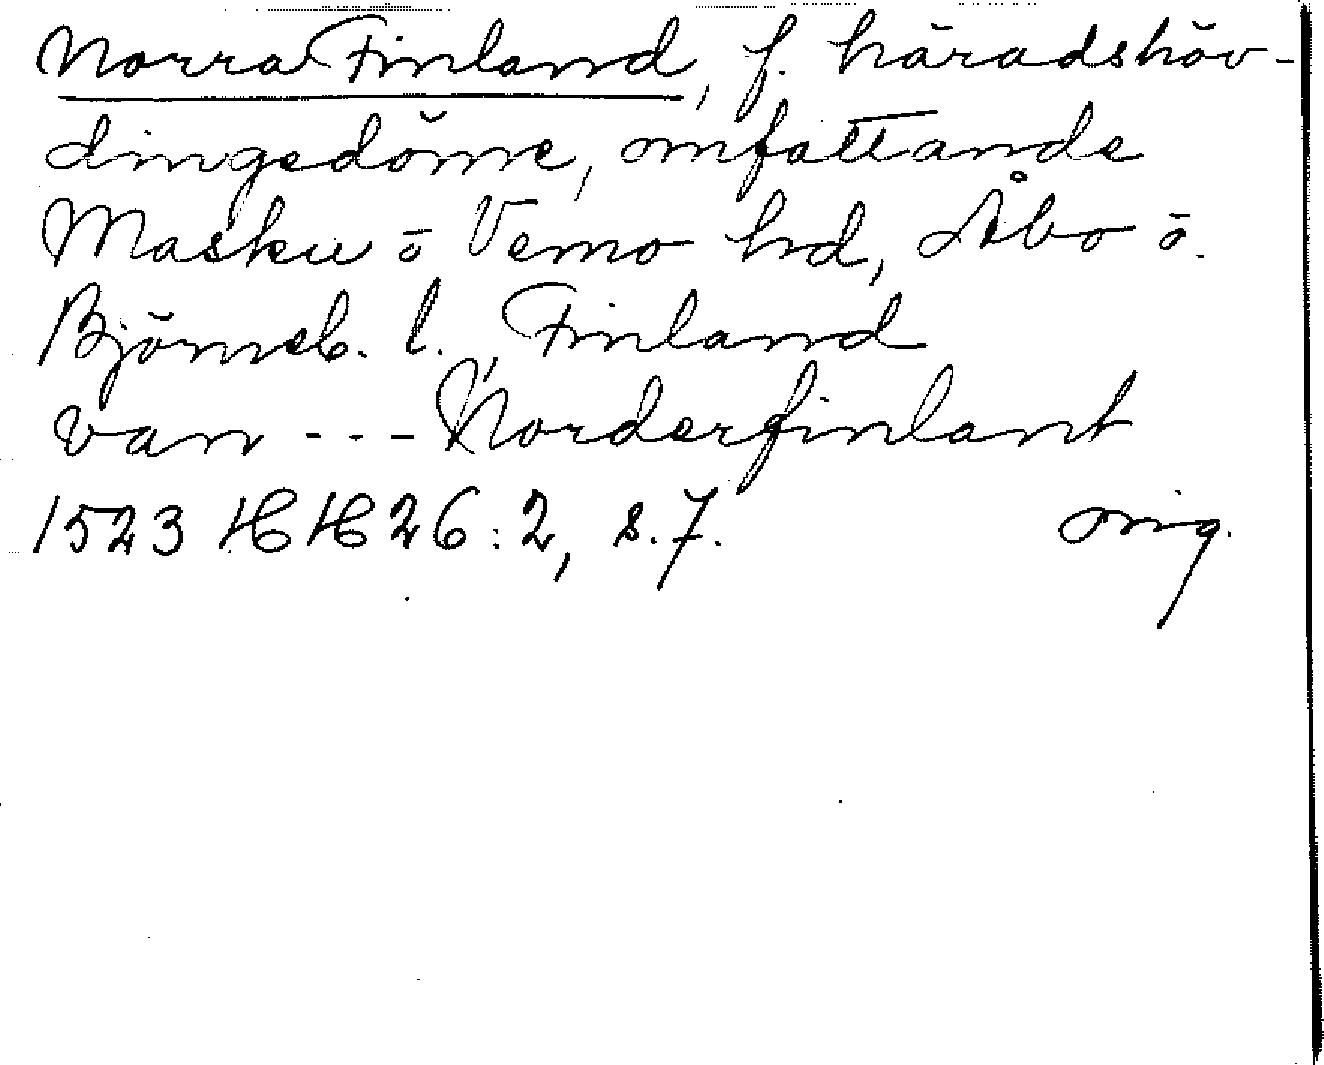 Norra Finland, f. häradshöv-
dingedöme, omfattande
Masku ō Vemo hd, Åbo ō.
Björneb. l., Finland
van --- Norderfinlant
1523 HH 26:2, s. 7. orig.